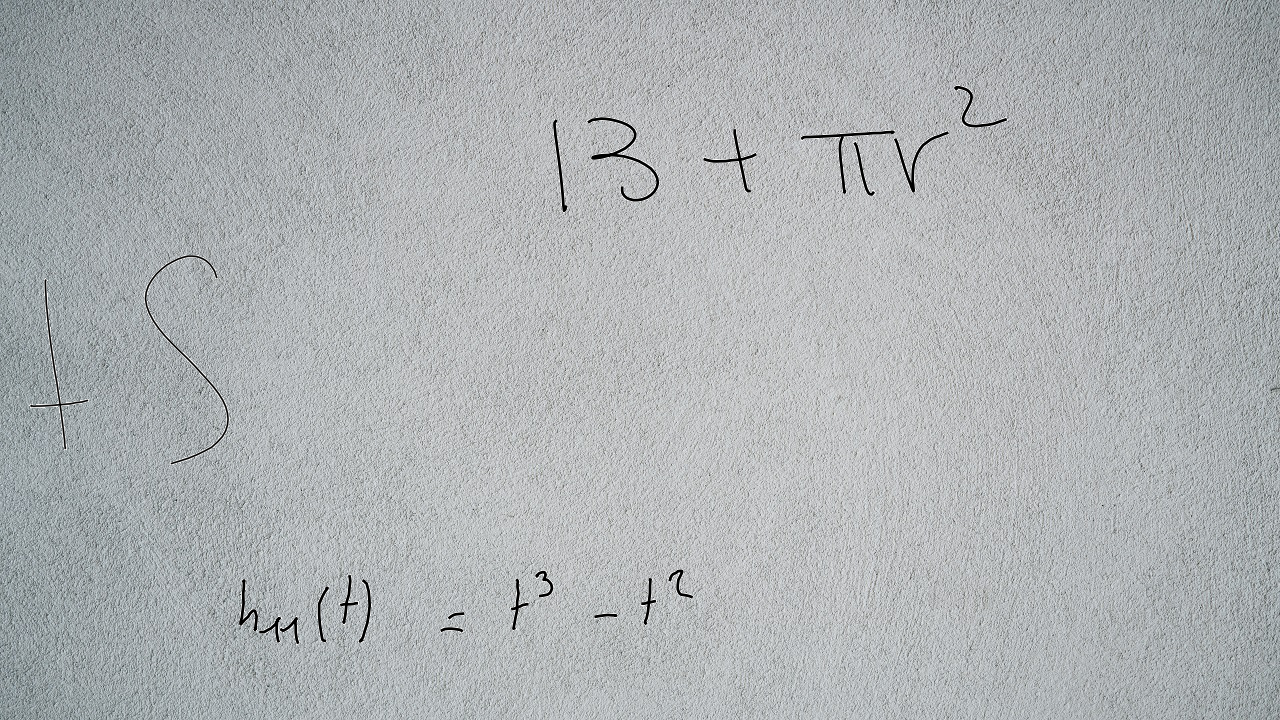 13 + πr²
+S
h₁₁(t) = t³ - t²